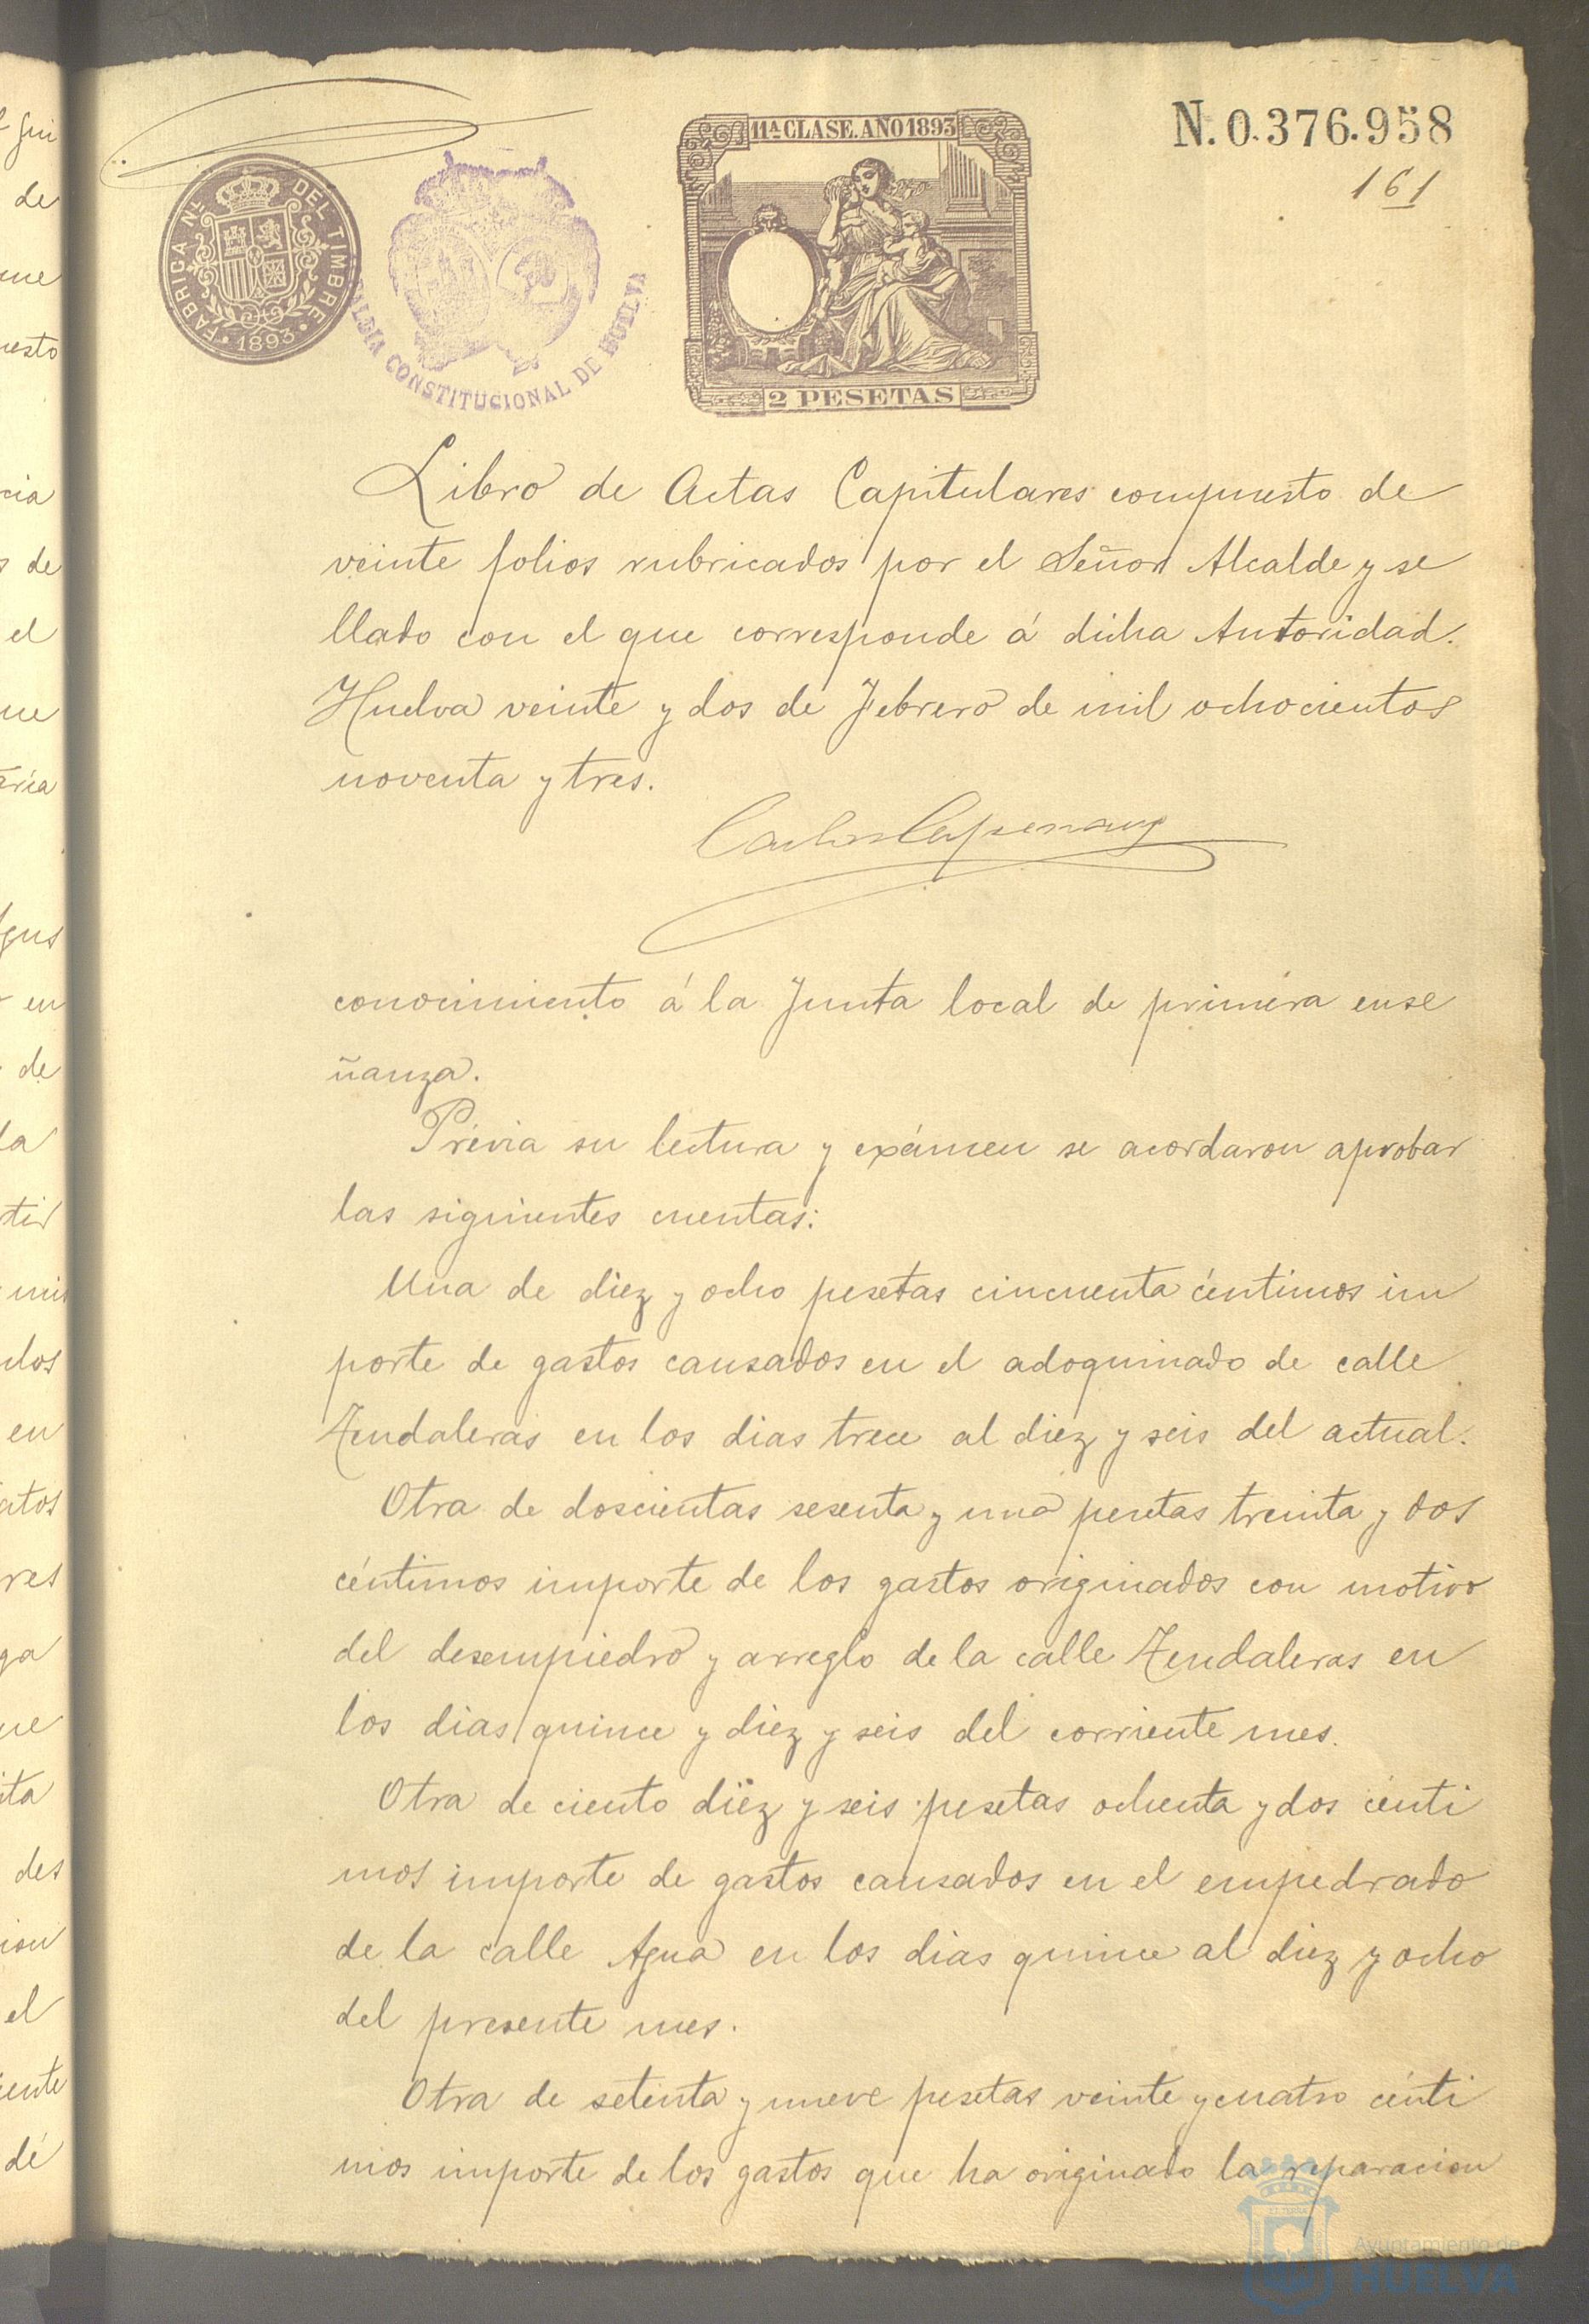 11ª CLASE. AÑO 1893
N. 0.376.958
161
FABRICA Nˡ. DEL TIMBRE
1893
ALDIA CONSTITUCIONAL DE HUELVA
2 PESETAS
Libro de Actas Capitulares compuesto de
veinte folios rubricados por el Señor Alcalde y se
llado con el que corresponde á dicha Autoridad.
Huelva veinte y dos de Febrero de mil ochocientos
noventa y tres.
conocimiento á la Junta local de primera ense
ñanza.
Prévia su lectura y exámen se acordaron aprobar
las siguientes cuentas:
Una de diez y ocho pesetas cincuenta céntimos im
porte de gastos causados en el adoquinado de calle
Tendaleras en los dias trece al diez y seis del actual.
Otra de doscientas sesenta y una pesetas treinta y dos
céntimos importe de los gastos originados con motivo
del desempiedro y arreglo de la calle Tendaleras en
los dias quince y diez y seis del corriente mes.
Otra de ciento diez y seis pesetas ochenta y dos cénti
mos importe de gastos causados en el empedrado
de la calle Agua en los dias quince al diez y ocho
del presente mes.
Otra de setenta y nueve pesetas veinte y cuatro cénti
mos importe de los gastos que ha originado la reparacion
Ayuntamiento de
HUELVA